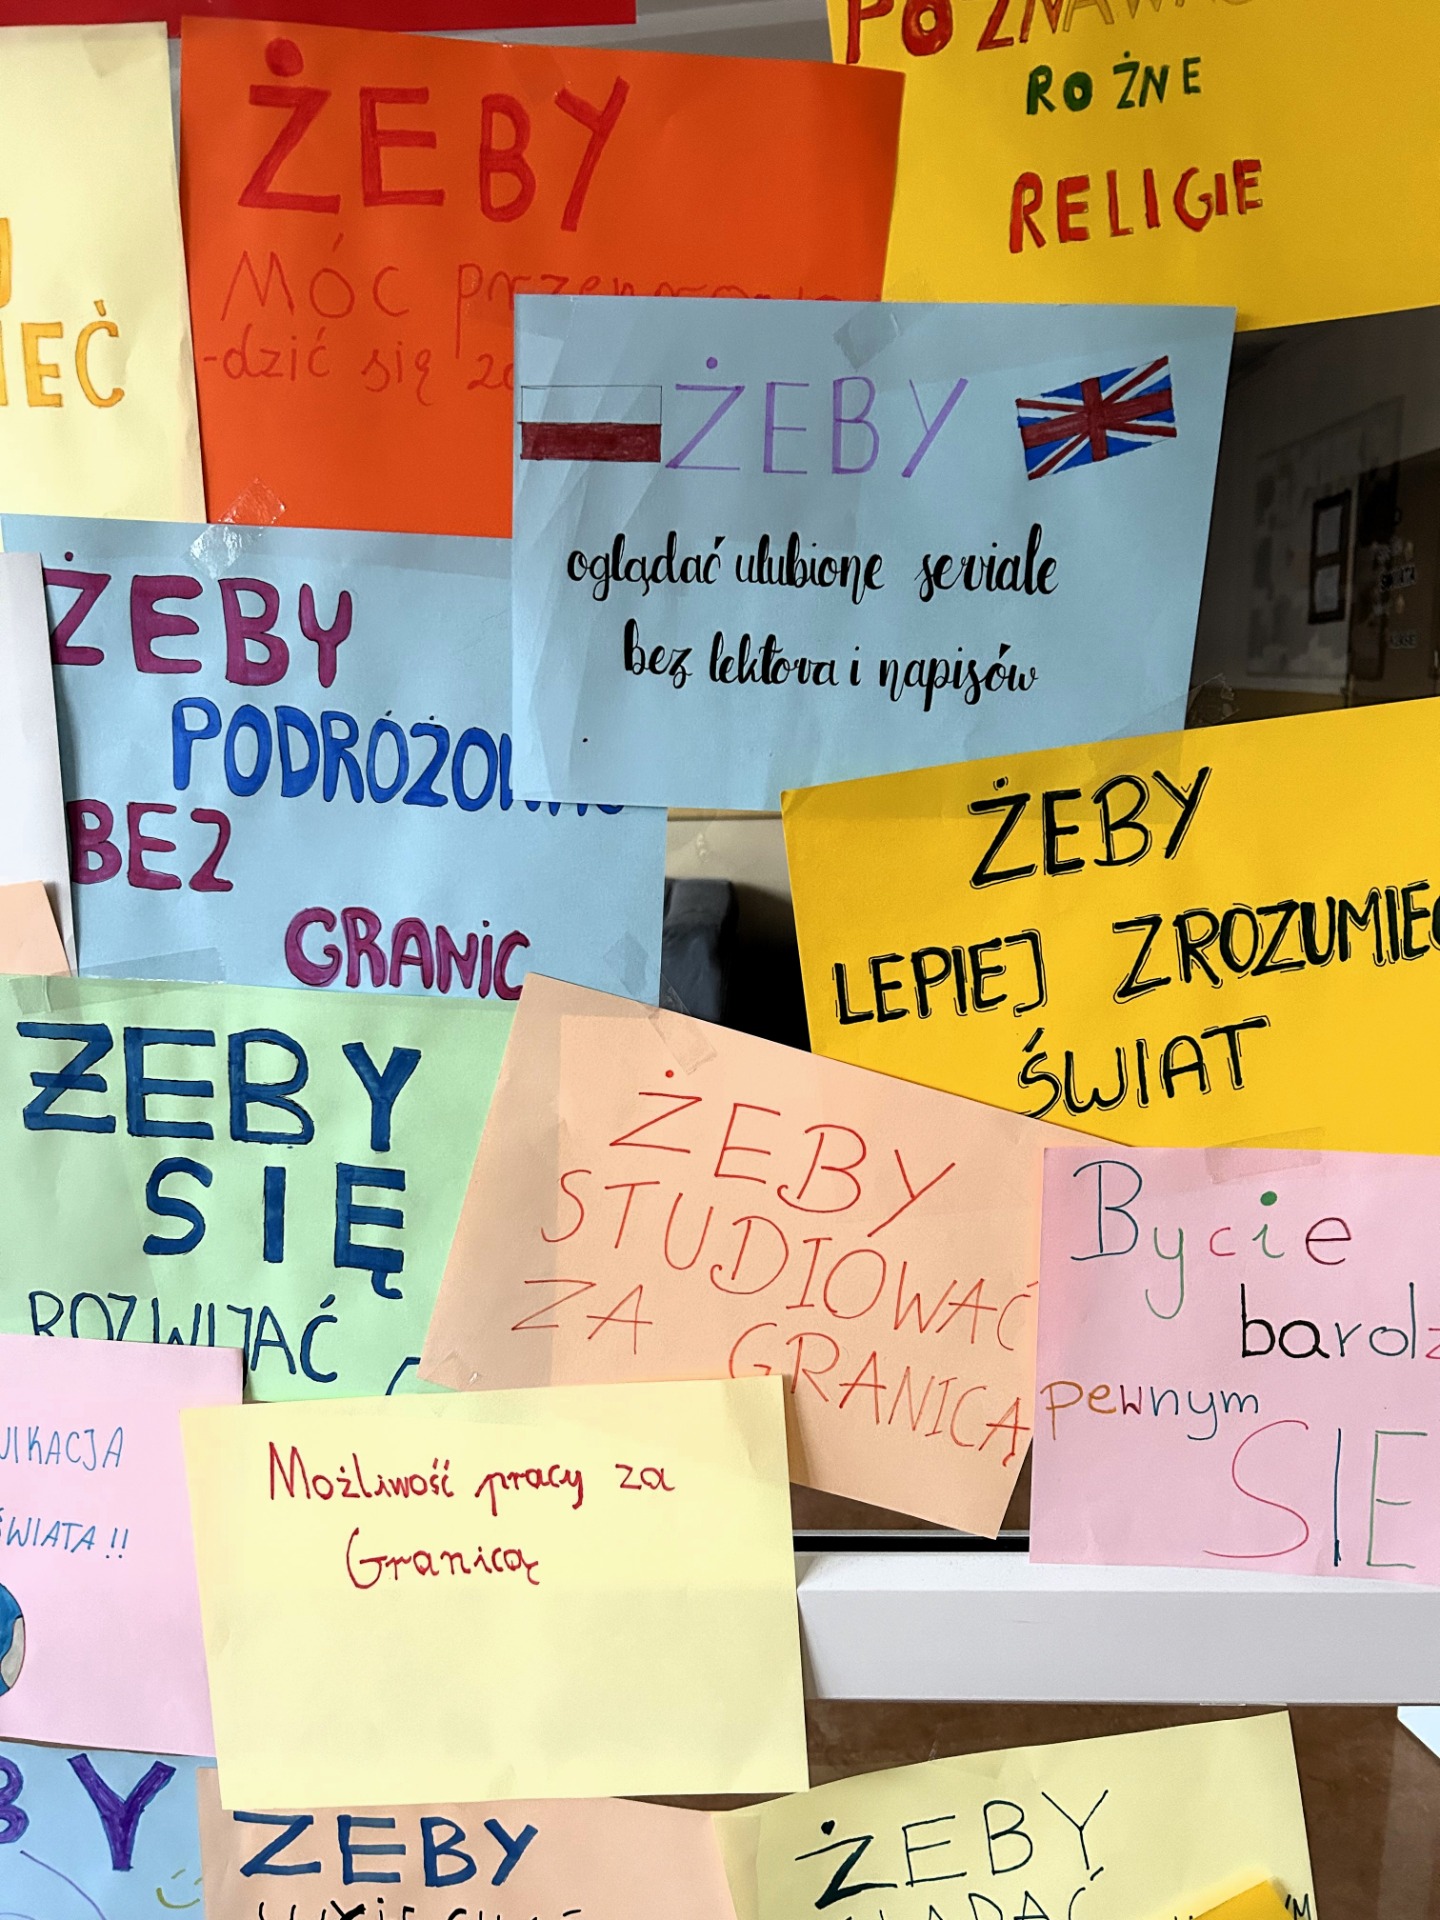 POZNAWAĆ
ROŻNE
RELIGIE
IEĆ
ŻEBY
MÓC
-dzić się
ŻEBY
oglądać ulubione seriale
bez lektora i napisów
ŻEBY
PODRÓŻOWAĆ
BEZ
GRANIC
ŻEBY
LEPIEJ ZROZUMIEĆ
ŚWIAT
ŻEBY
SIĘ
ROZWIJAĆ
ŻEBY
STUDIOWAĆ
ZA GRANICĄ
Bycie
bardz
pewnym
SIE
NIKACJA
ŚWIATA!!
Możliwość pracy za
Granicą
BY
ŻEBY
ŻEBY